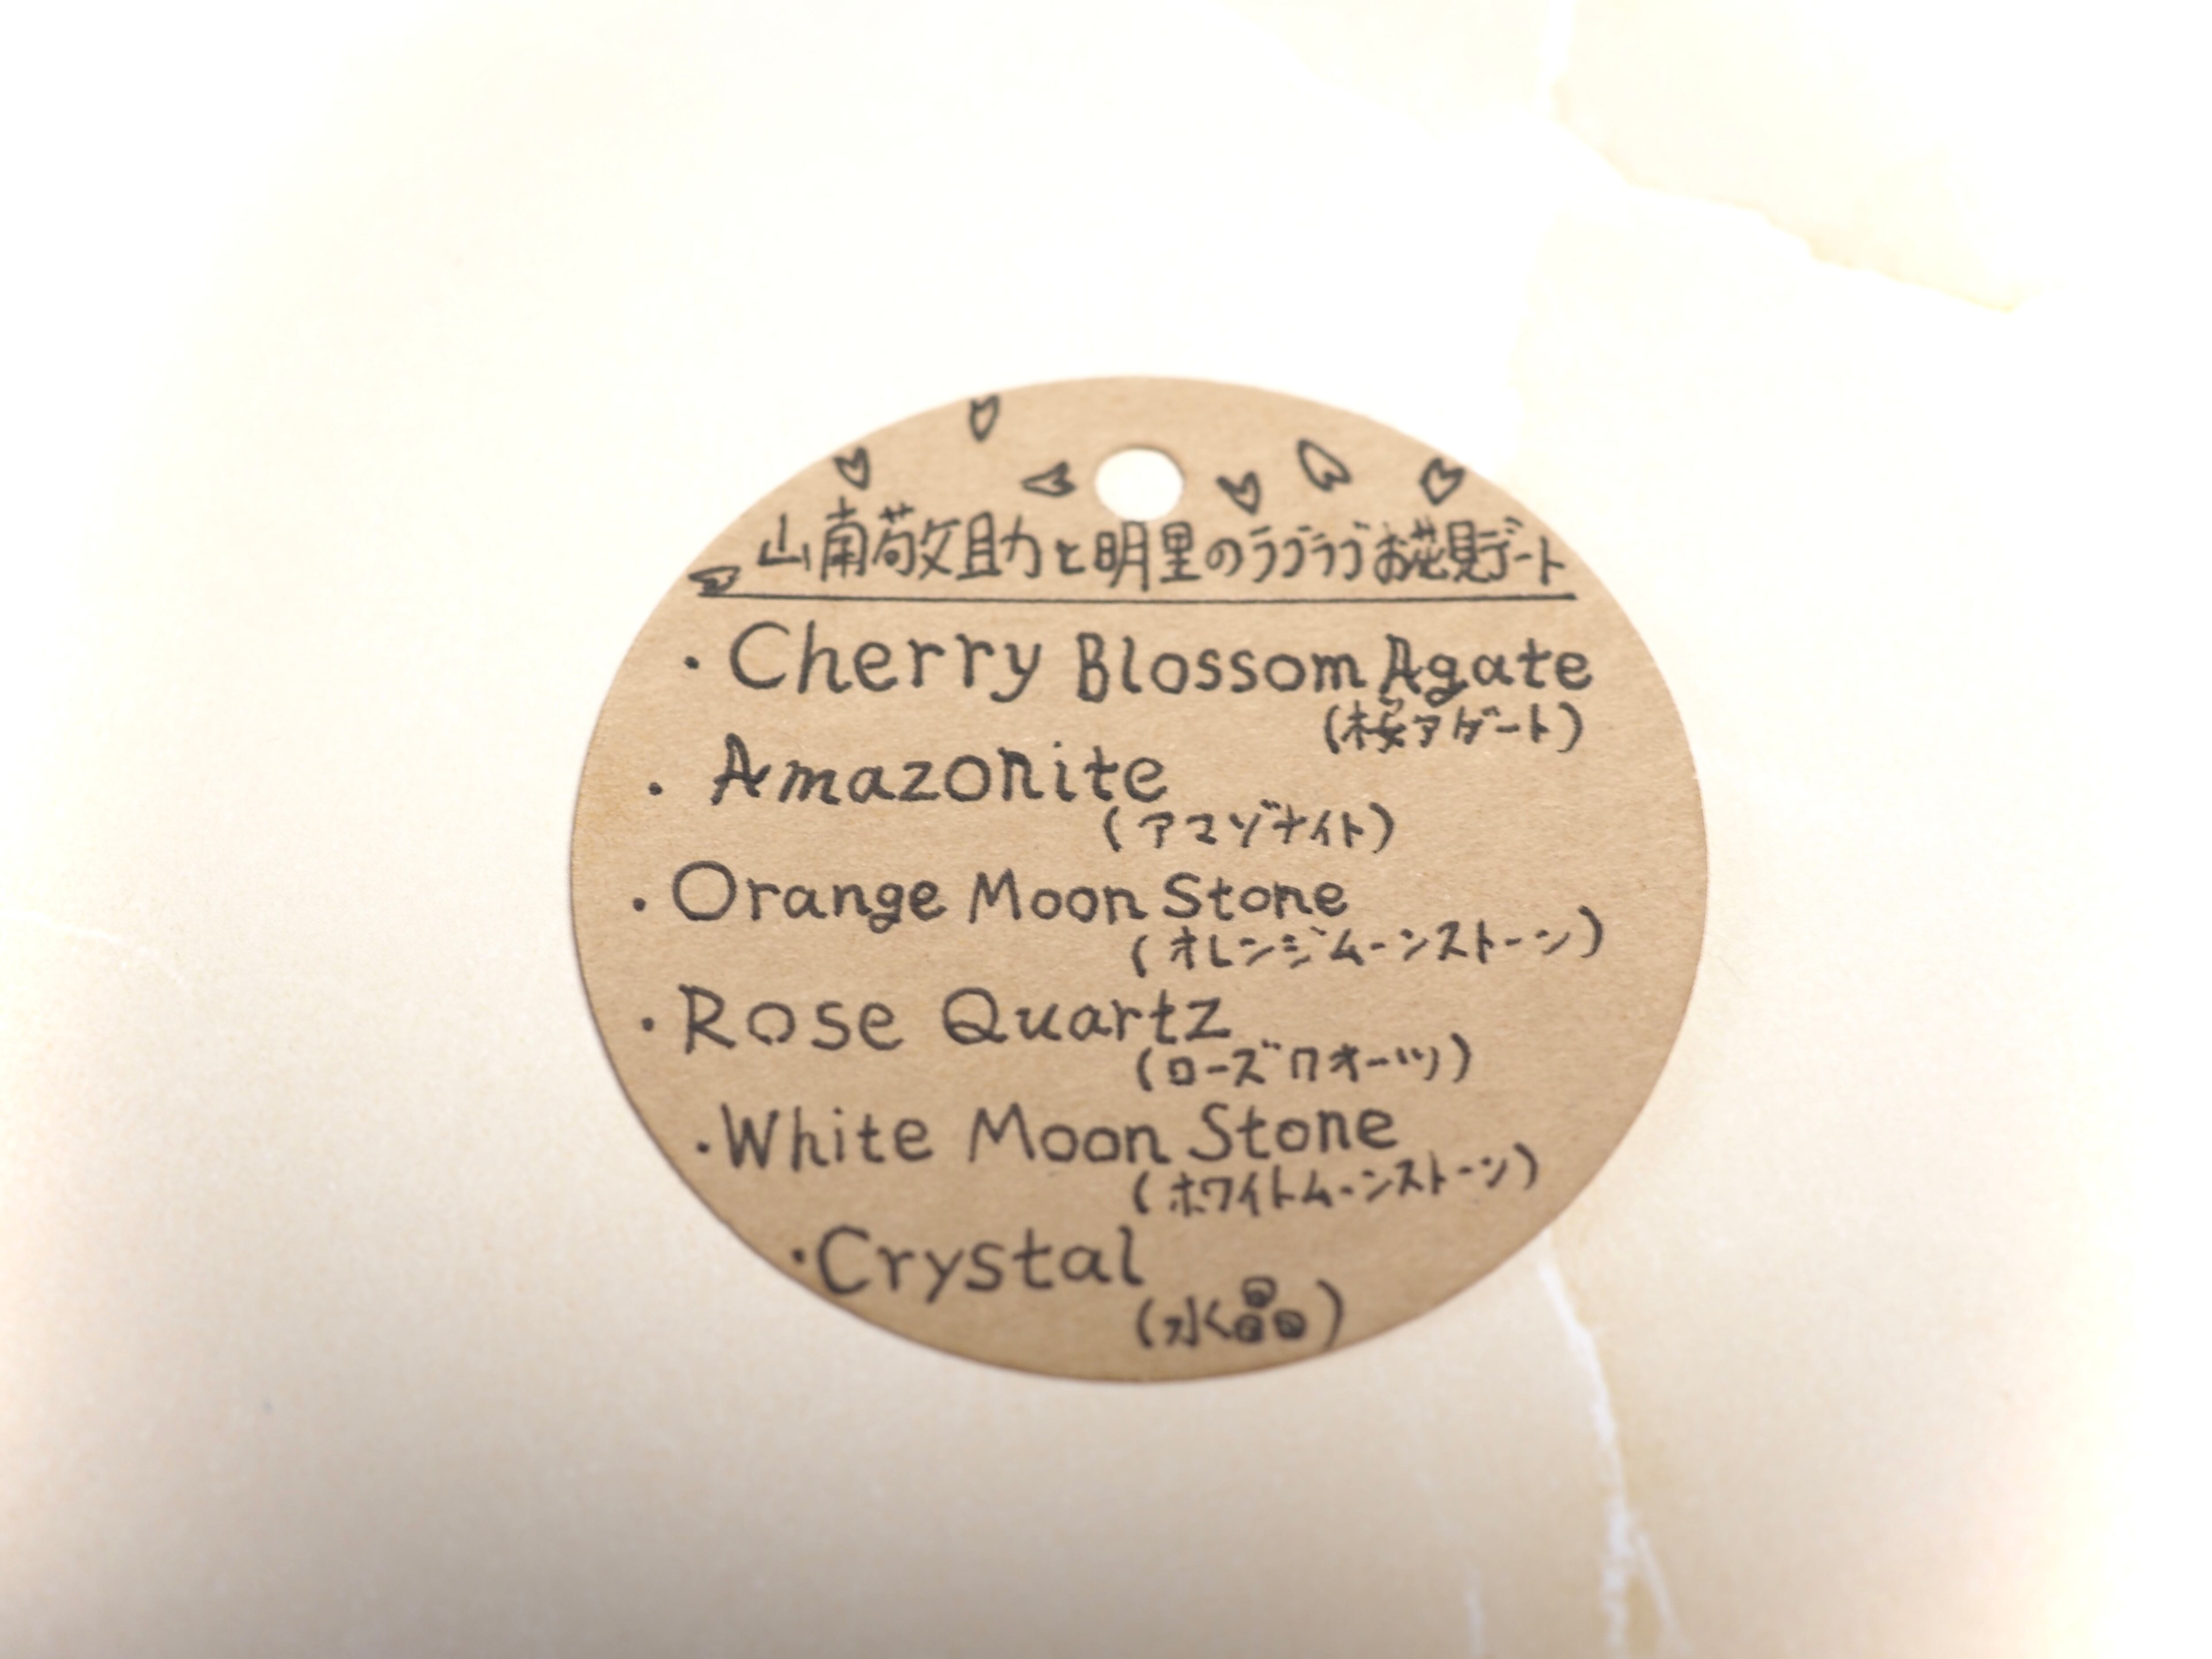 山南敬助と明里のラブラブお花見デート
・Cherry Blossom Agate
(桜アゲート)
・Amazonite
(アマゾナイト)
・Orange Moon Stone
(オレンジムーンストーン)
・Rose Quartz
(ローズクオーツ)
・White Moon Stone
(ホワイトムーンストーン)
・Crystal
(水晶)